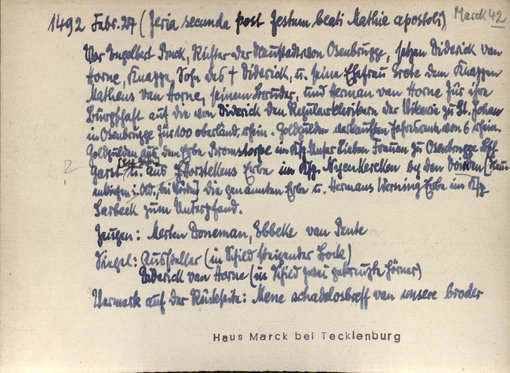 1492 Febr. 27 (feria secunda post festum beati Mathie apostoli) Marck 42
Vor Engelbert Brock, Richter der Neustadt von Osenbrugge, setzen Diderick van
Horne, Knappe, Sohn des † Diderick, u. seine Ehefrau Grete dem Knappen
Matheus van Horne, seinem Bruder, und Herman van Horne für ihre
Bürgschaft auf die von Diderick den Regularklerikern der Vikarie zu St. Johan
in Osenbrugge für 100 oberland. rhein. Goldgulden verkauften Jahrbank von 6 rhein.
Goldgulden aus den Erbe im Ksp. Unser Lieben Frauen zu Osenbrugge
? u. aus Erbe im Ksp. Nyenkercken by den
die genannten Erbe u. Hermans Werning Erbe im Ksp.
Larbeck zum Unterpfand.
Zeugen: Merten Doneman, Ebbeke van Dente
Siegel: (Aussteller (im Schild steigender Bock)
Diderick van Horne (im Schild zwei gekreuzte Hörner)
Vermerk auf der Rückseite: Mene schadelosbreff van unsere broder
Haus Marck bei Tecklenburg